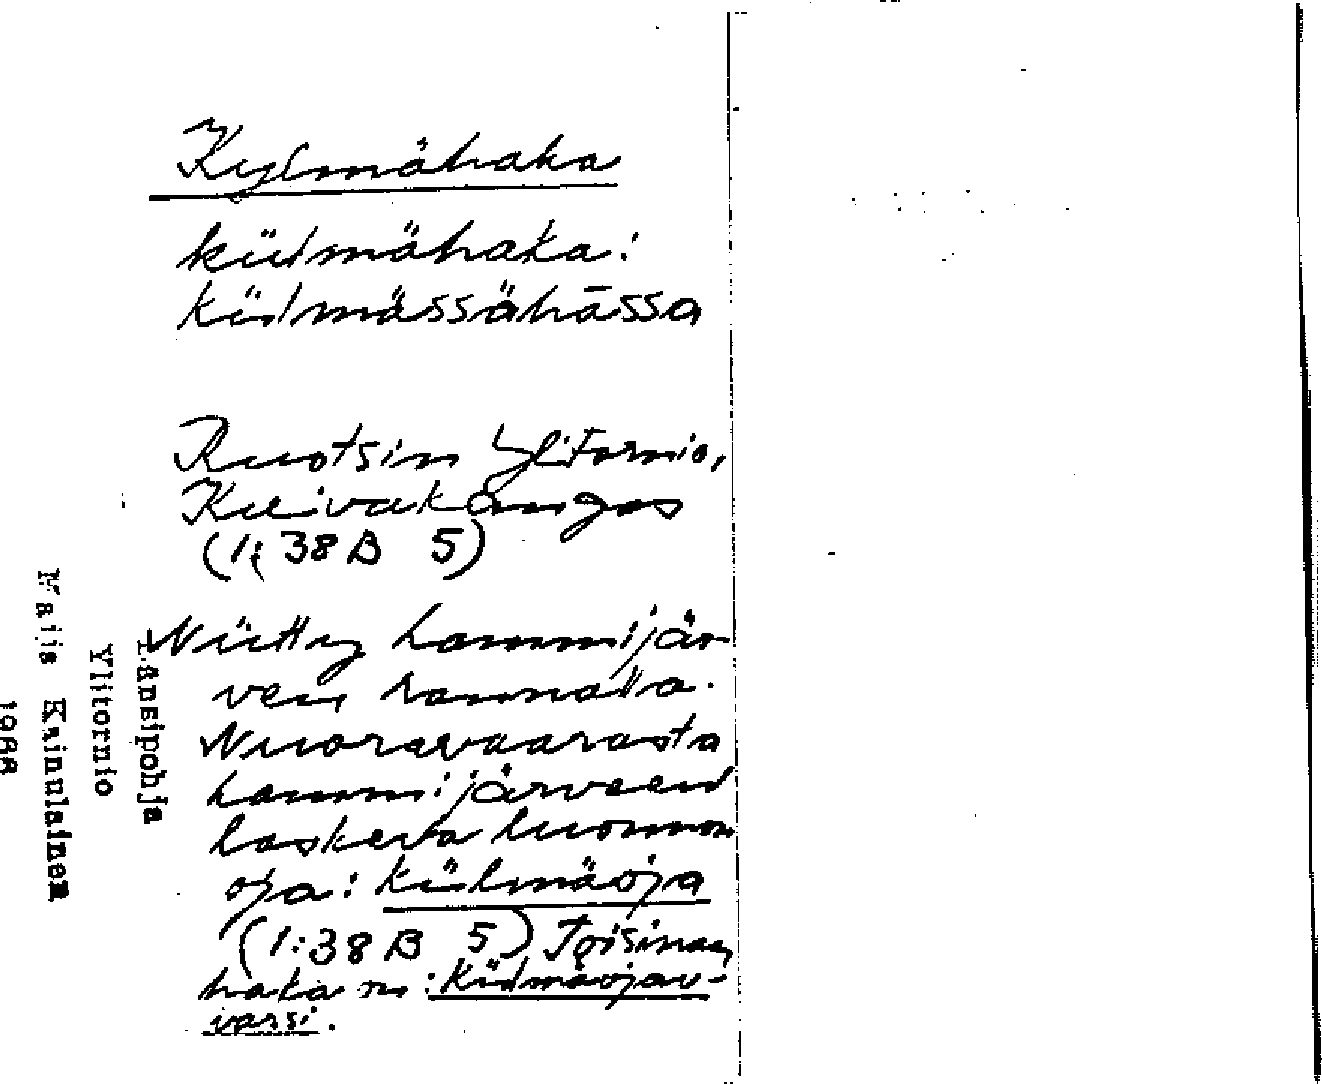 Kylmähaka
külmähaka:
külmässähāssa
Ruotsin Ylitornio,
Kuivakangas
(1: 38 B 5)
Niitty Lammijär
ven rannalla.
Nuoravaarasta
Lammijärveen
laskeva luonnon
oja: külmäoja
(1:38 B 5) Toisinaan
haka m: Külmäojav-
varsi.
Länsipohja
Ylitornio
Maija Kainulainen
1988